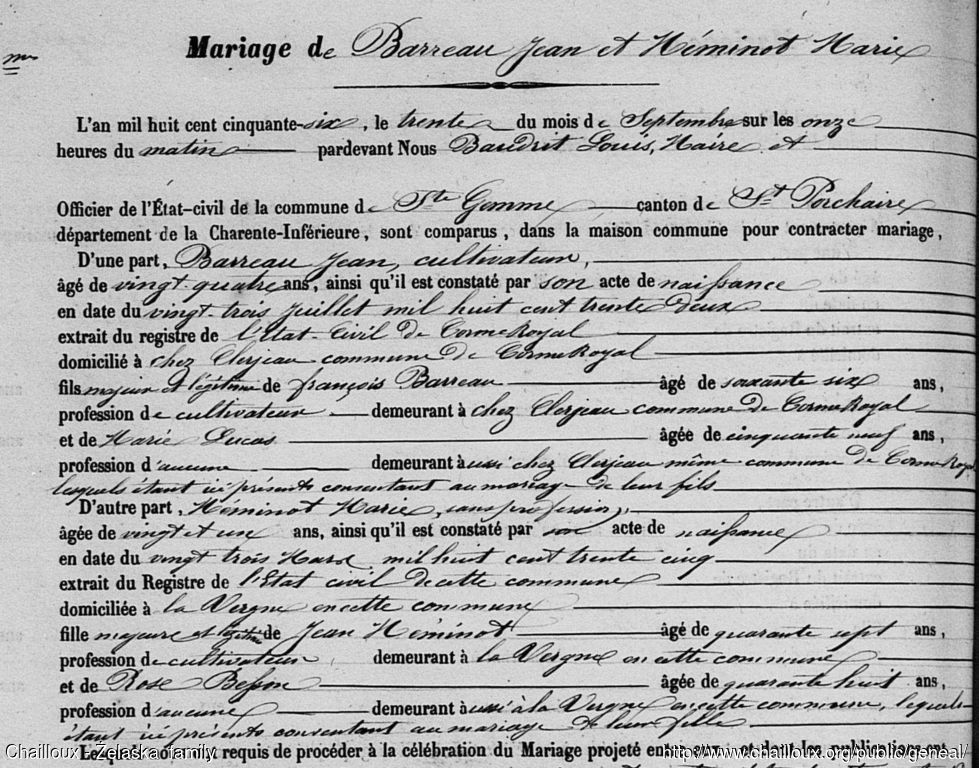 Mariage de Barreau Jean et Héminot Marie
L'an mil huit cent cinquante-six, le trente du mois de Septembre sur les onze
heures du matin pardevant Nous Baudrit Louis, Maire et
Officier de l'État-civil de la commune de Ste Gemme canton de St Porchaire
département de la Charente-Inférieure, sont comparus, dans la maison commune pour contracter mariage,
D'une part, Barreau Jean, cultivateur,
âgé de vingt-quatre ans, ainsi qu'il est constaté par son acte de naissance
en date du vingt-trois juillet mil huit cent trente deux
extrait du registre de l'Etat-Civil de CormeRoyal
domicilié à chez Clerjeau commune de CormeRoyal
fils majeur et légitime de françois Barreau âgé de soixante six ans,
profession de cultivateur demeurant à chez Clerjeau commune de CormeRoyal
et de Marie Lucas âgée de cinquante neuf ans,
profession d'aucune demeurant à aussi chez Clerjeau même commune de CormeRoyal
lesquels étant ici présents consentant au mariage de leur fils
D'autre part, Héminot Marie, sans profession,
âgée de vingt et un ans, ainsi qu'il est constaté par son acte de naissance
en date du vingt trois Mars mil huit cent trente cinq
extrait du Registre de l'Etat civil de cette commune
domiciliée à la Vergne en cette commune
fille majeure et légitime de Jean Héminot âgé de quarante sept ans,
profession de cultivateur demeurant à la Vergne en cette commune
et de Rose Besson âgée de quarante huit ans,
profession d'aucune demeurant à aussi à la Vergne en cette commune, lesquels
étant ici présents consentant au mariage de leur fille
requis de procéder à la célébration du Mariage projeté entre eux et dont les publications ont
Chailloux - Żelaska family
http://www.chailloux.org/public/geneal/